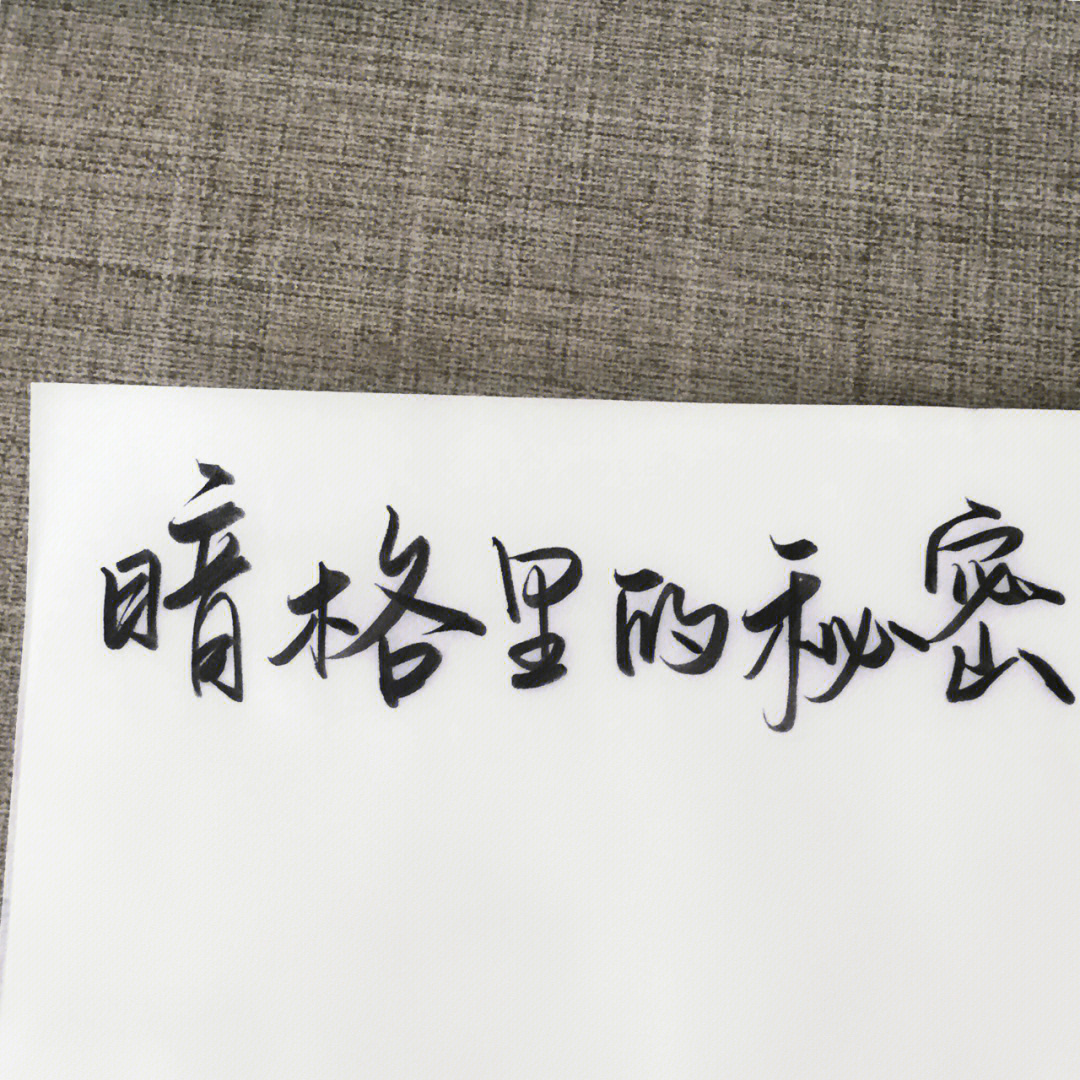 暗格里的秘密